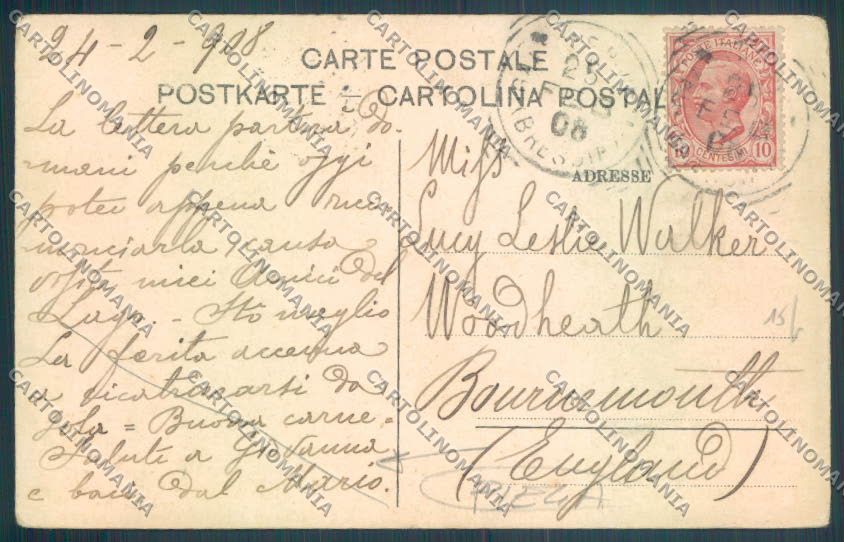 24-2-908
CARTE POSTALE
POSTKARTE – CARTOLINA POSTALE
ADRESSE
La lettera partirà do-
mani perchè oggi
potei appena
causa
visita miei Amici del
Lago - Stò meglio
La ferita accenna
a cicatrizzarsi da
sola = Buona carne =
Saluti a Giovanna
e baci dal Mario.
POSTE ITALIANE
CENTESIMI 10
(BRESCIA)
08
Miss
Lucy Leslie Walker
Woodheath
Bournemouth
(England)
15
PIEGA
CARTOLINOMANIA